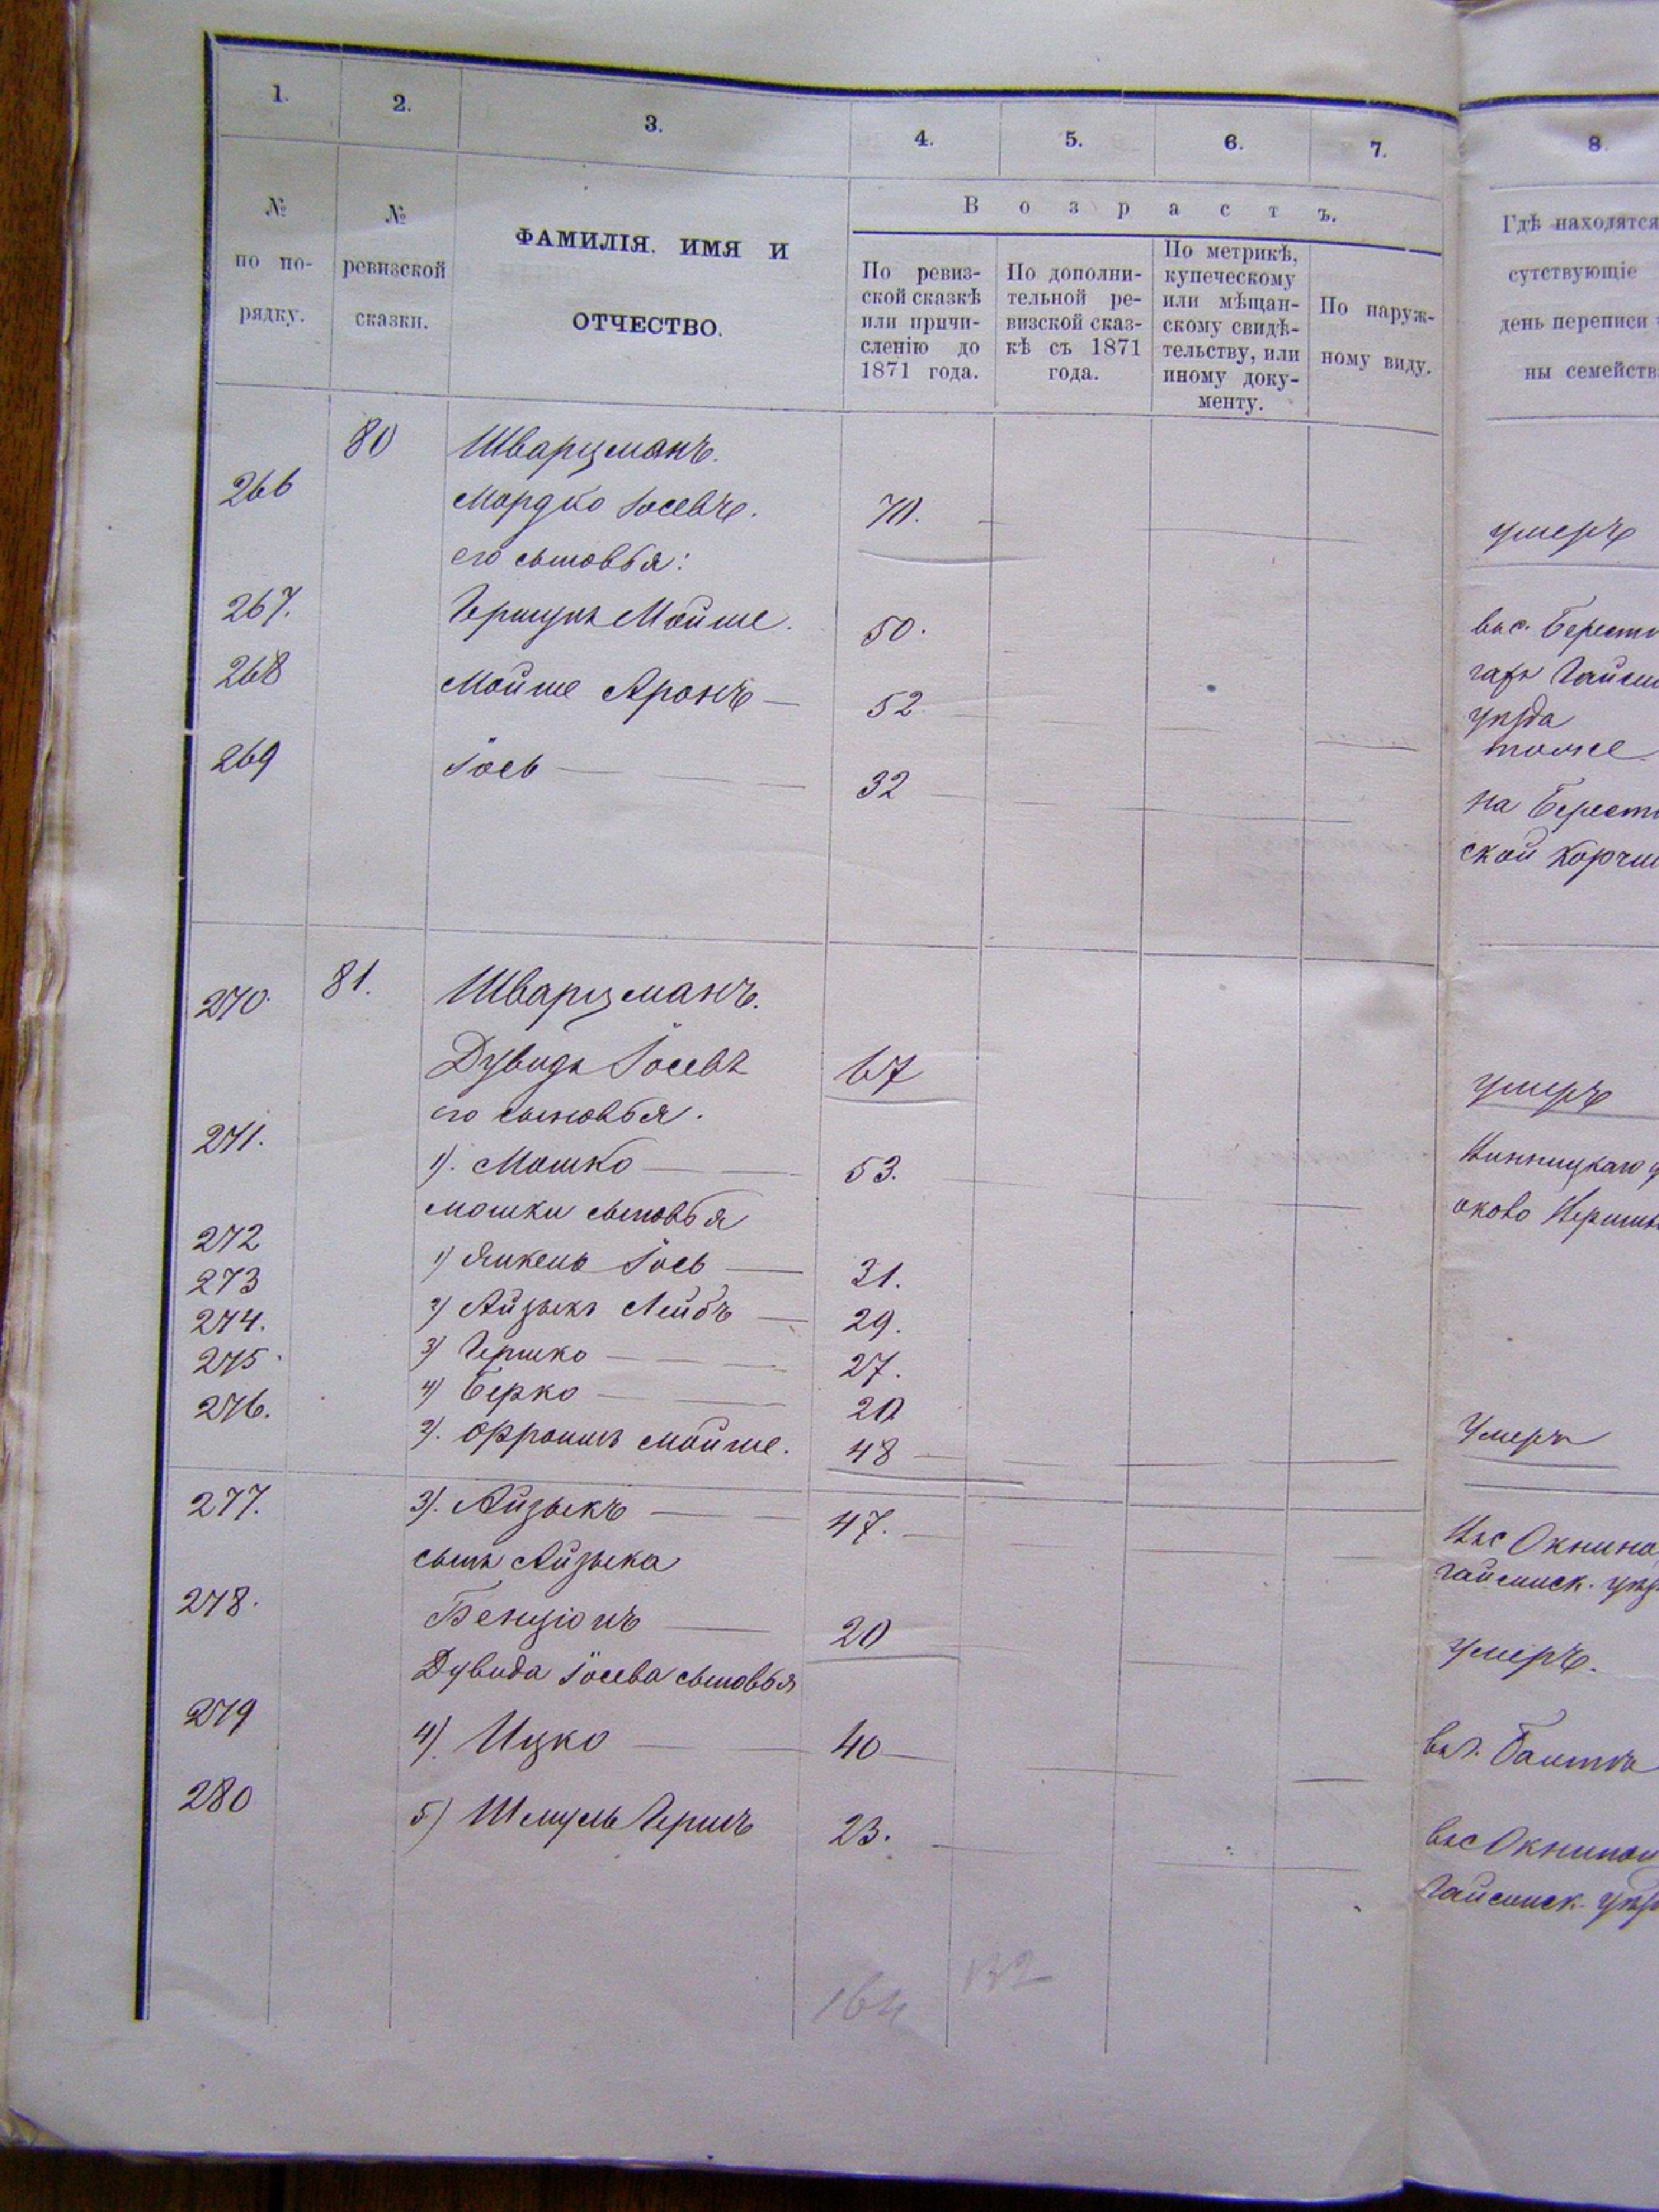 1. 2. 3. 4. 5. 6. 7. 8.
№ по по-рядку.
№ ревизской сказки.
ФАМИЛІЯ. ИМЯ И
ОТЧЕСТВО.
Возрастъ.
По ревиз-
ской сказкѣ
или причи-
сленію до
1871 года.
По дополни-
тельной ре-
визской сказ-
кѣ съ 1871
года.
По метрикѣ,
купеческому
или мѣщан-
скому свидѣ-
тельству, или
иному доку-
менту.
По наруж-
ному виду.
Гдѣ находятся
сутствующіе
день переписи
ны семейств
80 Шварцманъ.
266 Мордко Іосевъ. 70. умеръ
его сыновья:
267. Гершунъ Мойше. 50. въ с.
268 Мойше Аронъ 52
уѣзда
тоже
269 Іось 32 на
ской
270. 81. Шварцманъ.
Дувидъ Іосевъ 67 умеръ
его сыновья.
271. 1). Мошко 53. Винницкаго
Мошки сыновья
272 1) Янкель Іось 31.
273 2) Айзыкъ Лейбъ 29.
274. 3) Гершко 27.
275. 4) Берко 20
276. 2). Фроимъ Мойше. 48 Умеръ
277. 3). Айзыкъ 47. Въ с
Гайсинск. уѣз
сынъ Айзыка
278. Бенціонъ 20 умеръ.
Дувида Іосева сыновья
279 4). Ицко 40
280 5) Шмуль Гершъ 23. въ с
Гайсинск. уѣз
164 132